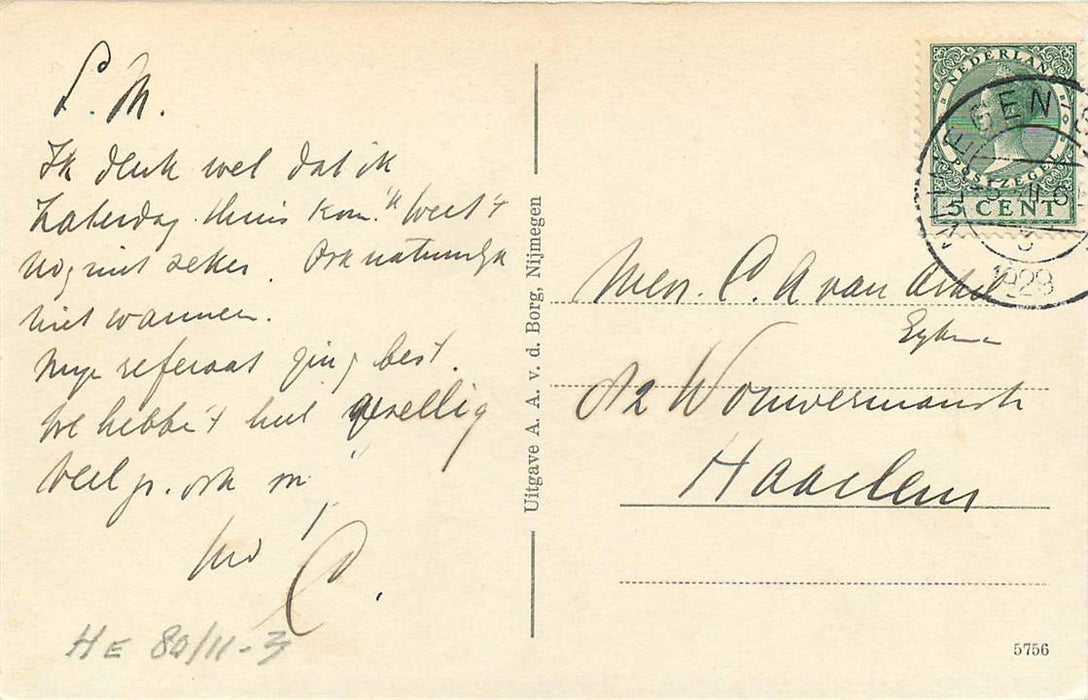 L. M.
Ik denk wel dat ik
Zaterdag thuis kom. 'k Weet 't
nog niet zeker. Ook natuurlijk
niet wanneer.
Mijn referaat ging best.
We hebbe 't heel gezellig
Veel gr. ook
C.
HE 80/11-3
Uitgave A. A. v. d. Borg, Nijmegen
NEDERLAND
POSTZEGEL
5 CENT
NIJMEGEN
1928
Mevr. C. A van
Wouwermanstr
Haarlem
5756